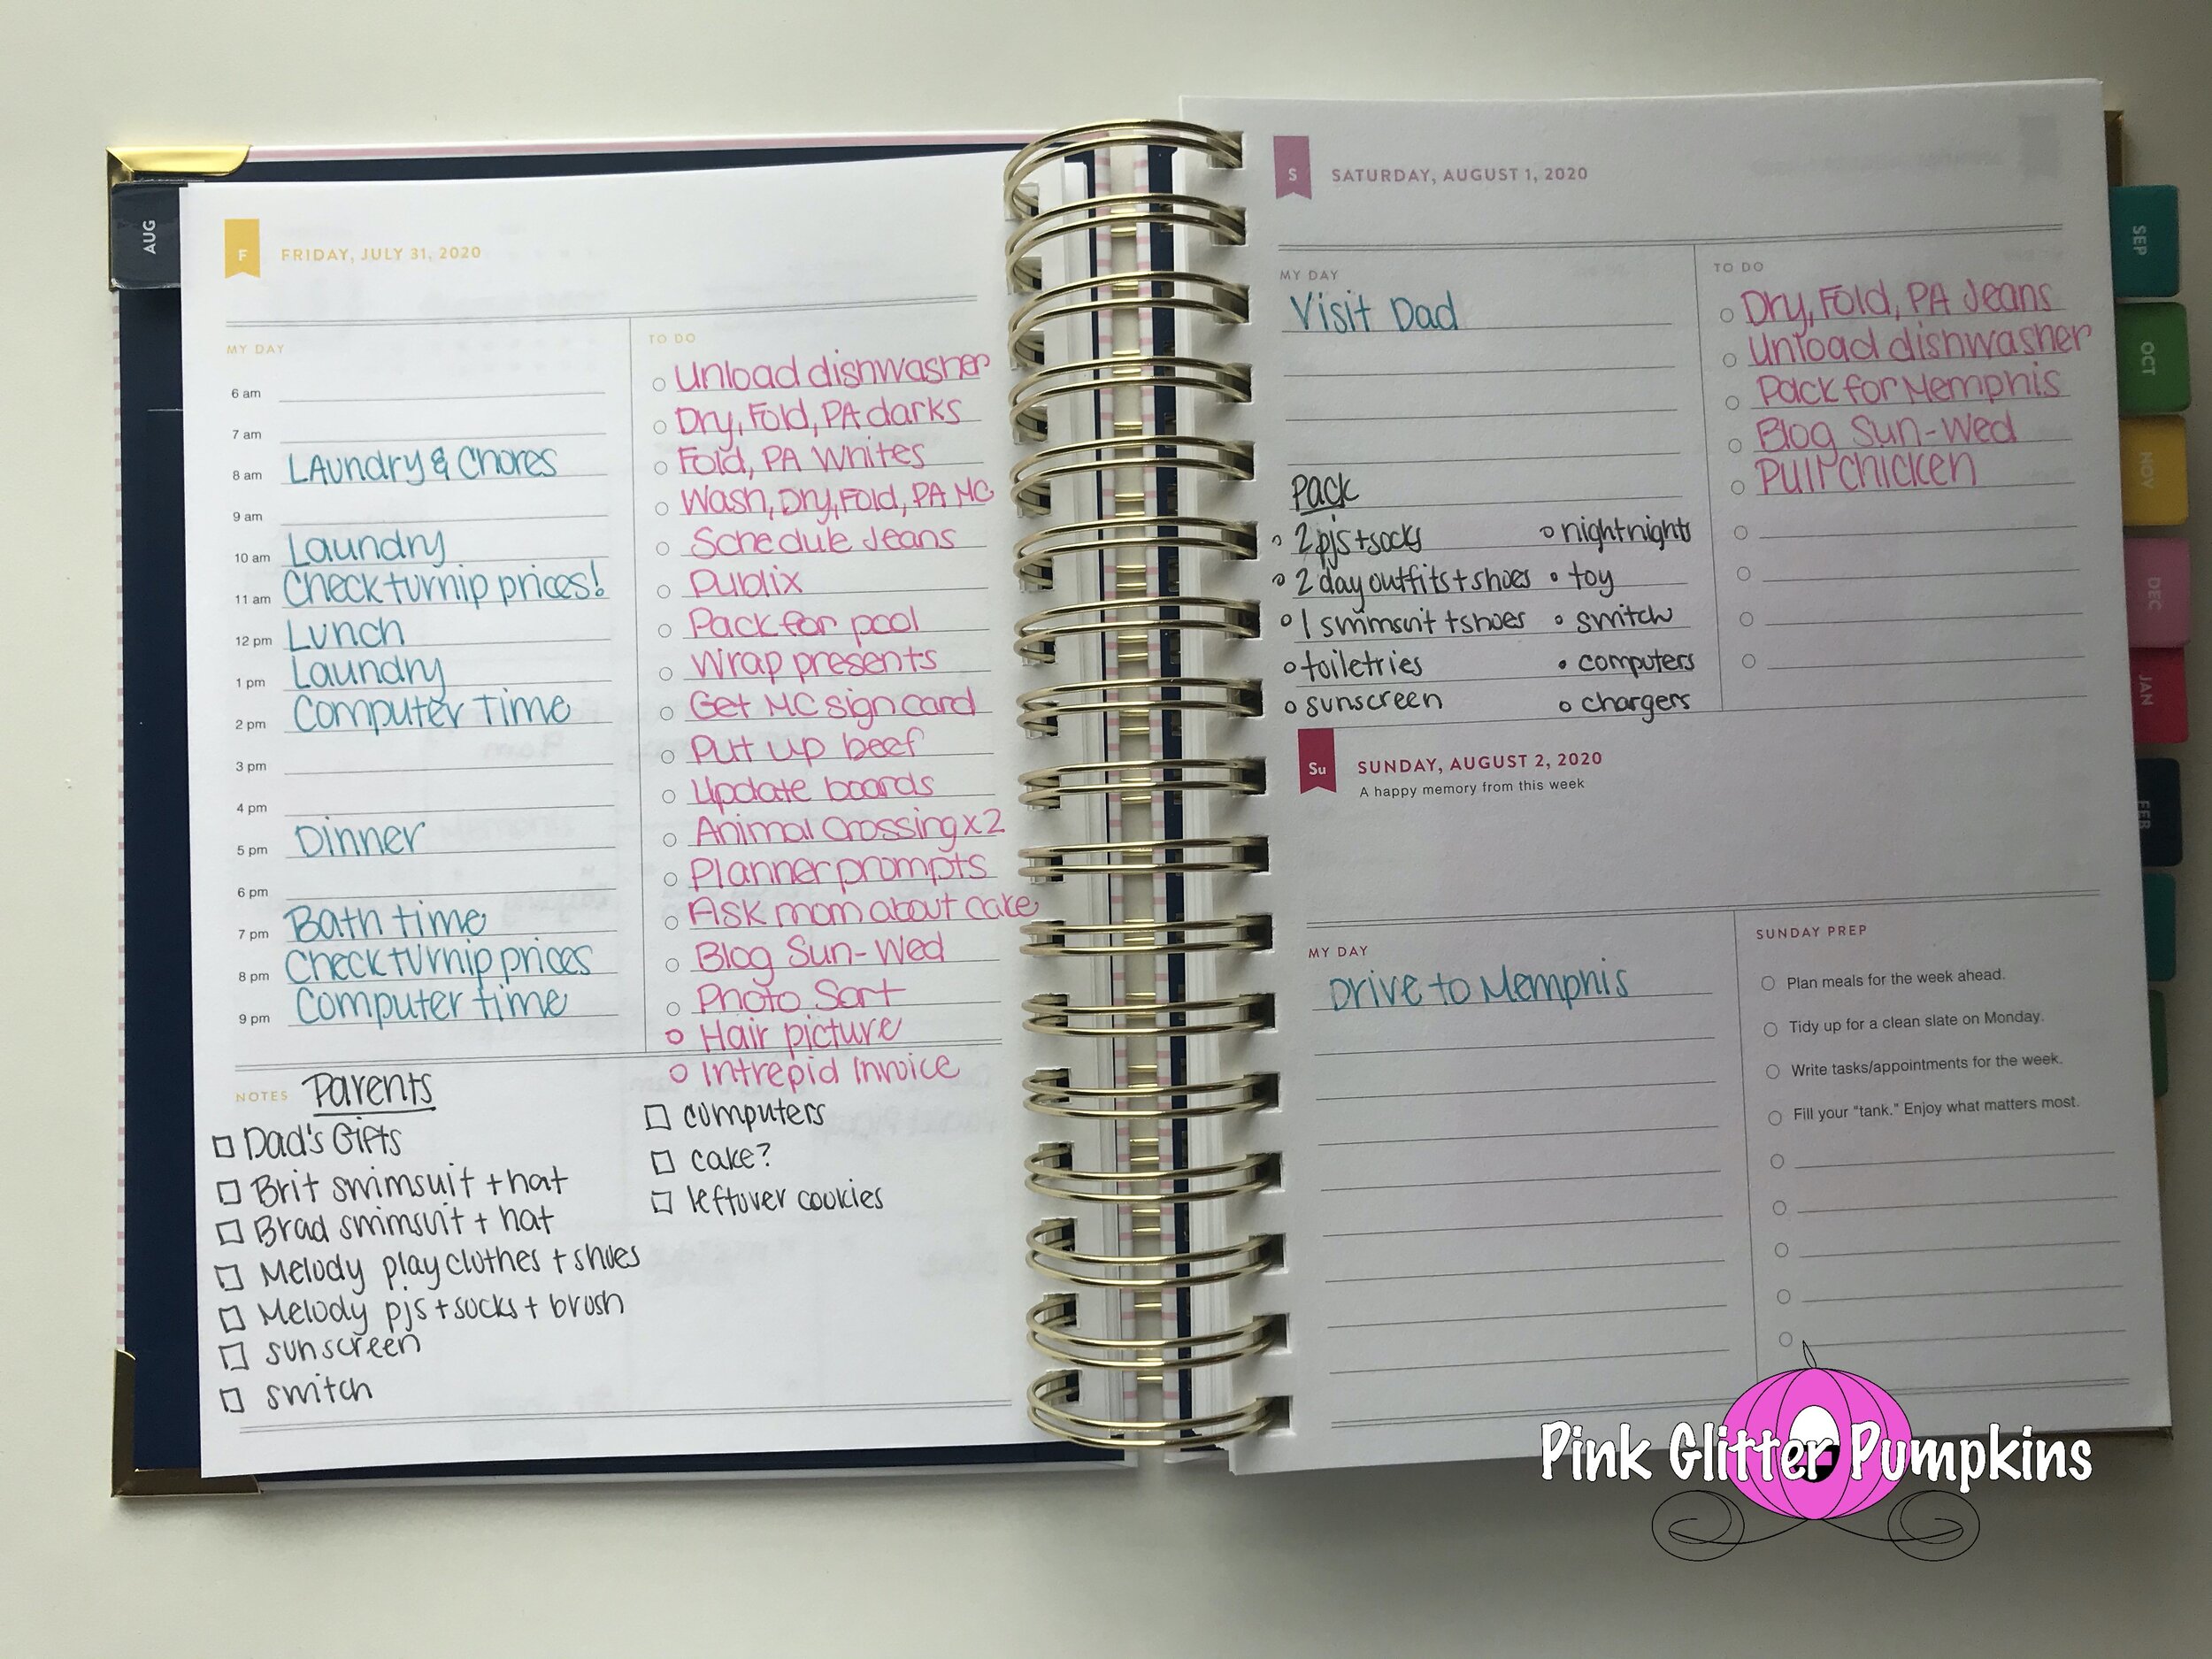 AUG
F
FRIDAY, JULY 31, 2020
MY DAY
6 am
7 am
8 am Laundry & Chores
9 am
10 am Laundry
11 am Check turnip prices!
12 pm Lunch
1 pm Laundry
2 pm Computer Time
3 pm
4 pm
5 pm Dinner
6 pm
7 pm Bath time
8 pm Check turnip prices
9 pm Computer time
TO DO
Unload dishwasher
Dry, Fold, PA darks
Fold, PA Whites
Wash, Dry, Fold, PA MC
Schedule Jeans
Publix
Pack for pool
Wrap presents
Get MC sign card
Put up beef
Update boards
Animal Crossing x2
Planner prompts
Ask mom about cake
Blog Sun-Wed
Photo Sort
Hair picture
Intrepid Invoice
NOTES Parents
Dad's Gifts
Brit swimsuit + hat
Brad swimsuit + hat
Melody play clothes + shoes
Melody pjs + socks + brush
sunscreen
switch
computers
cake?
leftover cookies
S
SATURDAY, AUGUST 1, 2020
MY DAY
Visit Dad
Pack
2 pjs + socks
2 day outfits + shoes
1 swimsuit + shoes
toiletries
sunscreen
nightnights
toy
switch
computers
chargers
TO DO
Dry, Fold, PA Jeans
Unload dishwasher
Pack for Memphis
Blog Sun-Wed
Pull Chicken
Su
SUNDAY, AUGUST 2, 2020
A happy memory from this week
MY DAY
Drive to Memphis
SUNDAY PREP
Plan meals for the week ahead.
Tidy up for a clean slate on Monday.
Write tasks/appointments for the week.
Fill your "tank." Enjoy what matters most.
SEP
OCT
NOV
DEC
JAN
FEB
Pink Glitter Pumpkins